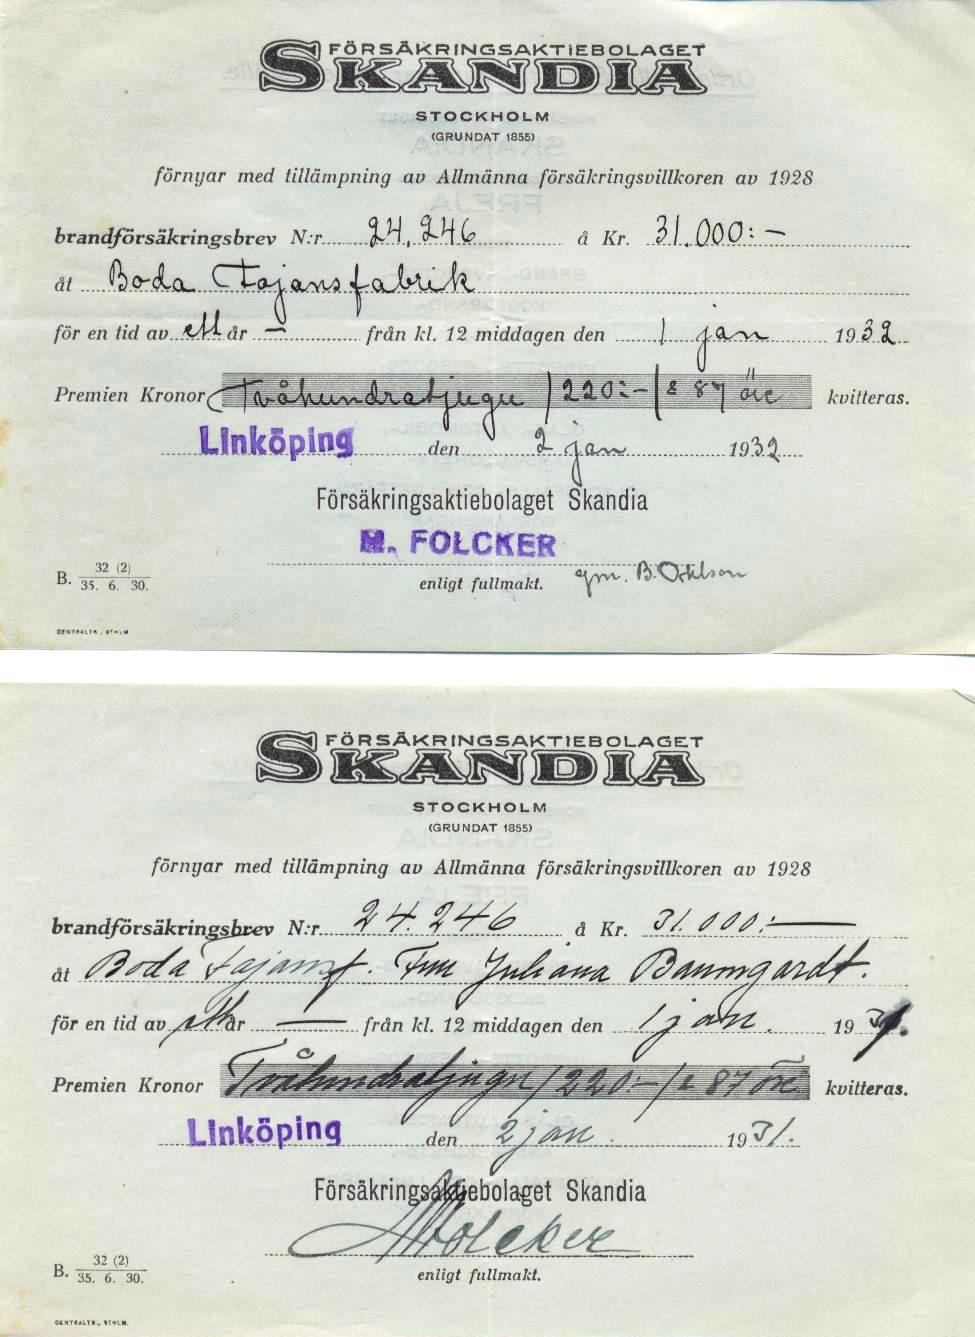 FÖRSÄKRINGSAKTIEBOLAGET
SKANDIA
STOCKHOLM
(GRUNDAT 1855)
förnyar med tillämpning av Allmänna försäkringsvillkoren av 1928
brandförsäkringsbrev N:r 24.246 å Kr. 31.000:-
åt Boda Fajansfabrik
för en tid av ett år — från kl. 12 middagen den 1 jan 1932
Premien Kronor Tvåhundratjugu / 220:- / & 87 öre kvitteras.
Linköping den 2 jan 1932
Försäkringsaktiebolaget Skandia
M. FOLCKER
enligt fullmakt. gm. B.
B. 32 (2)
35. 6. 30.
CENTRALTR., STHLM
FÖRSÄKRINGSAKTIEBOLAGET
SKANDIA
STOCKHOLM
(GRUNDAT 1855)
förnyar med tillämpning av Allmänna försäkringsvillkoren av 1928
brandförsäkringsbrev N:r 24.246 å Kr. 31.000:—
åt Boda Fajansf. Fru Juliana Baumgardt.
för en tid av ett år — från kl. 12 middagen den 1 jan. 1931.
Premien Kronor Tvåhundratjugu / 220:- / & 87 öre kvitteras.
Linköping den 2 jan. 1931.
Försäkringsaktiebolaget Skandia
MFolcker
enligt fullmakt.
B. 32 (2)
35. 6. 30.
CENTRALTR., STHLM.